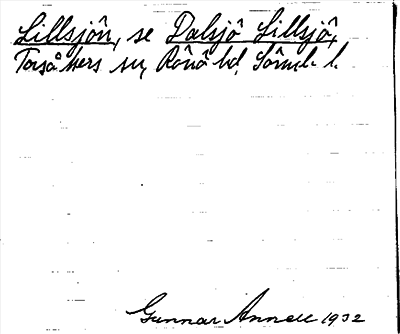 Lillsjön, se Dalsjö Lillsjö,
Torsåkers sn, Rönö hd, Södml. l.
Gunnar Annell 1932